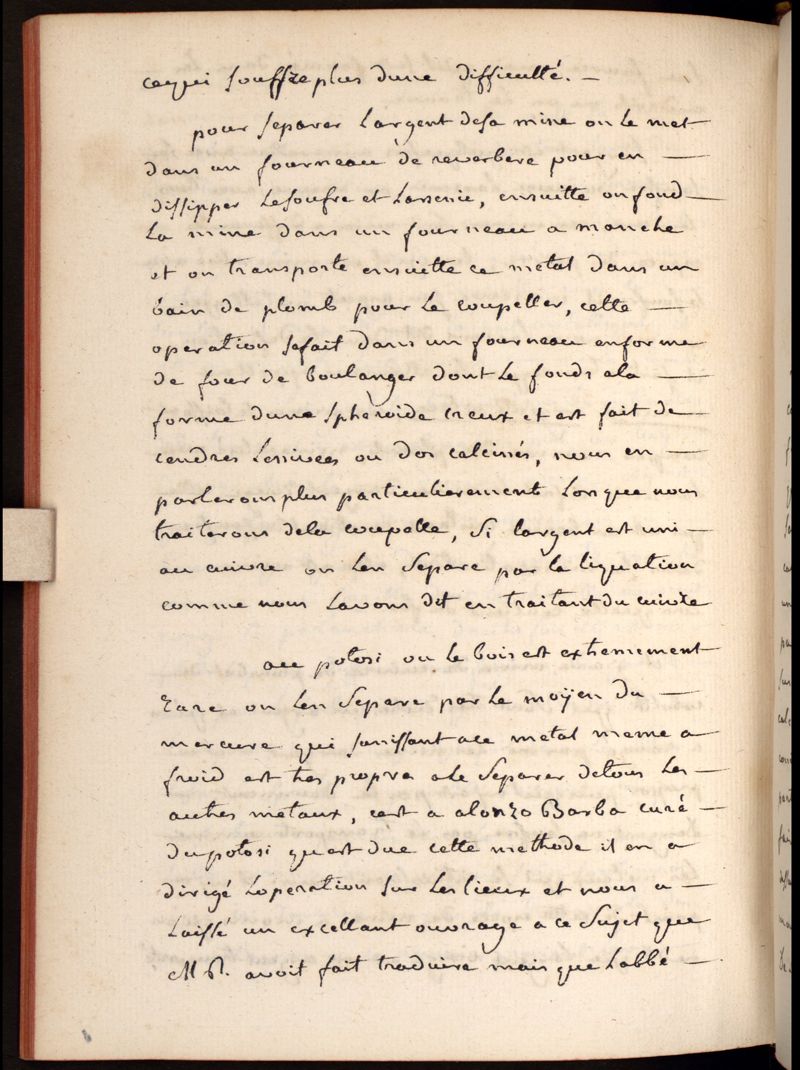 cequi souffre plus dune difficulté. —
pour separer Largent desa mine on Le met
dans un fourneau de reverbere pour en —
dissipper Lesoufre et Larsenic, ensuitte on fond —
La mine dans un fourneau a manche
et on transporte ensuitte ce metal dans un
bain de plomb pour Le coupeller, cette —
operation sefait dans un fourneau enforme
de four de boulanger dont Le fonds ala —
forme dune spheroide creux et est fait de —
cendres Lessivees ou dos calcinés, nous en —
parlerons plus particulierement Lorsque nous
traiterons dela coupelle, Si Largent est uni —
au cuivre on Len Separe par la liquation
comme nous Lavons dit en traitant du cuivre
au potosi ou Le bois est extremement
rare on Len Separe par Le moÿen du —
mercure qui sunissant au metal meme a
froid est tres propre a Le Separer detous Les —
autres metaux, cest a alonzo Barba curé —
du potosi quest due cette methode il en a
dirigé Loperation sur Les lieux et nous a —
Laissé un excellant ouvrage a ce Sujet que
M R. avoit fait traduire mais que Labbé —